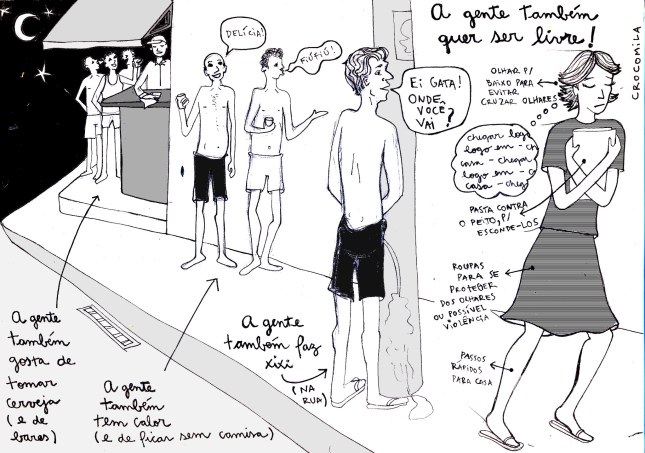 A gente também
quer ser livre!
CROCOMILA
DELÍCIA!
FIUFIÚ!
Ei GATA!
ONDE
VOCÊ
VAI ?
OLHAR P/
BAIXO PARA
EVITAR
CRUZAR OLHARES
chegar logo
logo em - ch
casa - chegar
logo em - c
casa - cheg
PASTA CONTRA
O PEITO, P/
ESCONDE-LOS
ROUPAS
PARA SE
PROTEGER
DOS OLHARES
OU POSSÍVEL
VIOLÊNCIA
PASSOS
RÁPIDOS
PARA CASA
A gente
também
gosta de
tomar
cerveja
(e de
bares)
A gente
também
tem calor
(e de ficar sem camisa)
A gente
também faz
xixi
(NA
RUA)